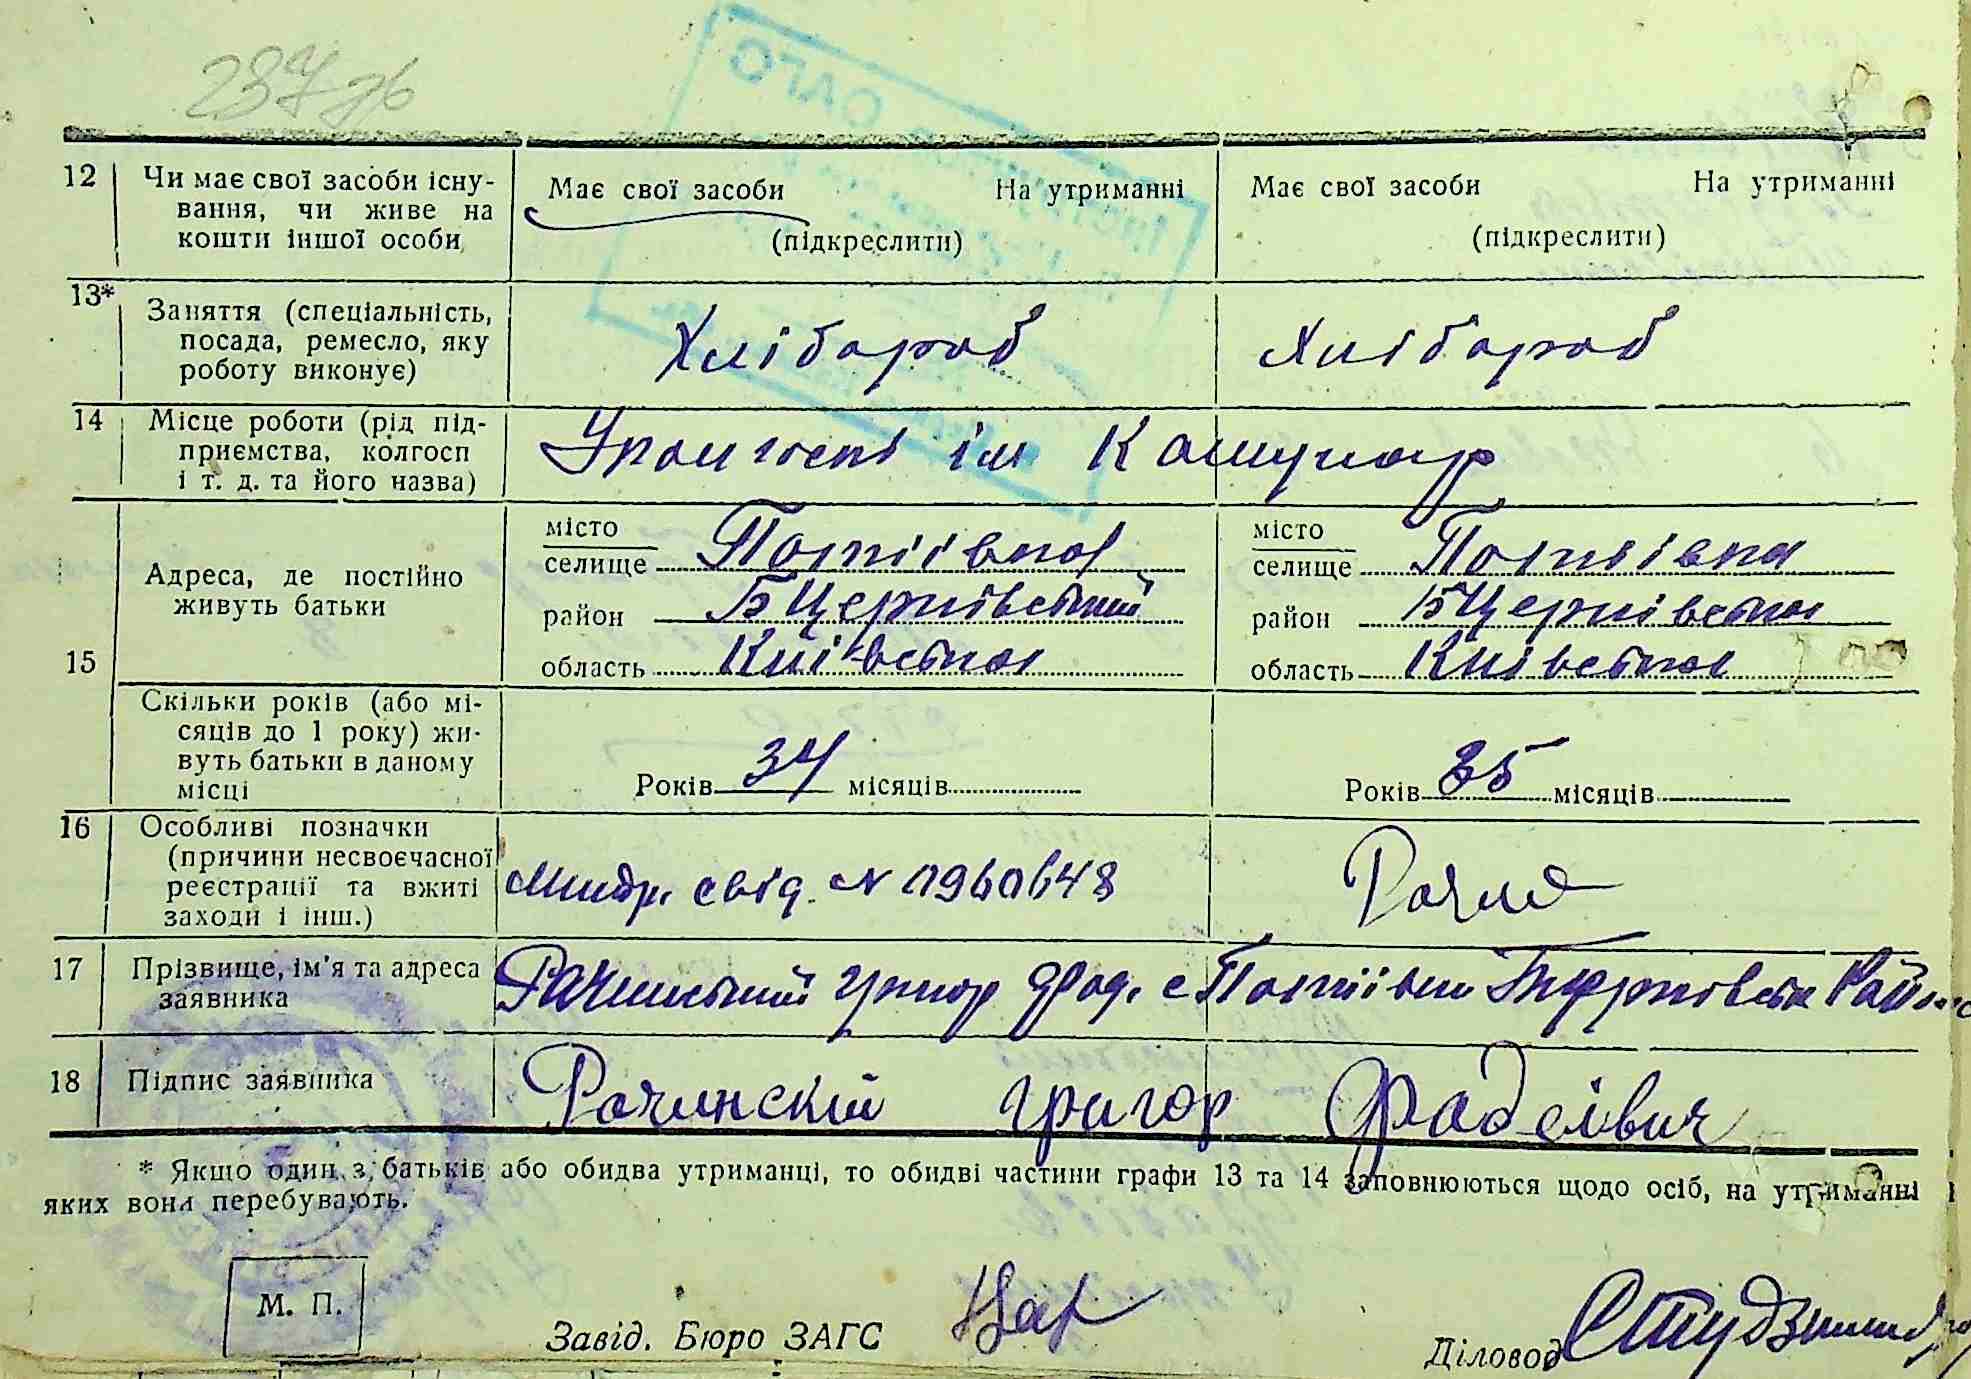 237
12 Чи має свої засоби існу- Має свої засоби На утриманні Має свої засоби На утриманні
вання, чи живе на
кошти іншої особи (підкреслити) (підкреслити)
13* Заняття (спеціальність,
посада, ремесло, яку Хлібороб Хлібороб
роботу виконує)
14 Місце роботи (рід під-
приємства, колгосп ім Комунар
і т. д. та його назва)
15 Адреса, де постійно
живуть батьки
місто місто
селище Потіївка селище Потіївка
район БЦерківський район БЦерківська
область Київська область Київська
Скільки років (або мі-
сяців до 1 року) жи-
вуть батьки в даному
місці Років 34 місяців Років 35 місяців
16 Особливі позначки
(причини несвоєчасної
реєстрації та вжиті свід. N
заходи і інш.)
17 Прізвище, ім'я та адреса
заявника Рачинський Григор Фад. с Потіївки БЦерківськ Район
18 Підпис заявника Рачинский Григор Фадеівич
* Якщо один з батьків або обидва утриманці, то обидві частини графи 13 та 14 заповнюються щодо осіб, на утриманні
яких вони перебувають.
М. П.
Завід. Бюро ЗАГС
Діловод